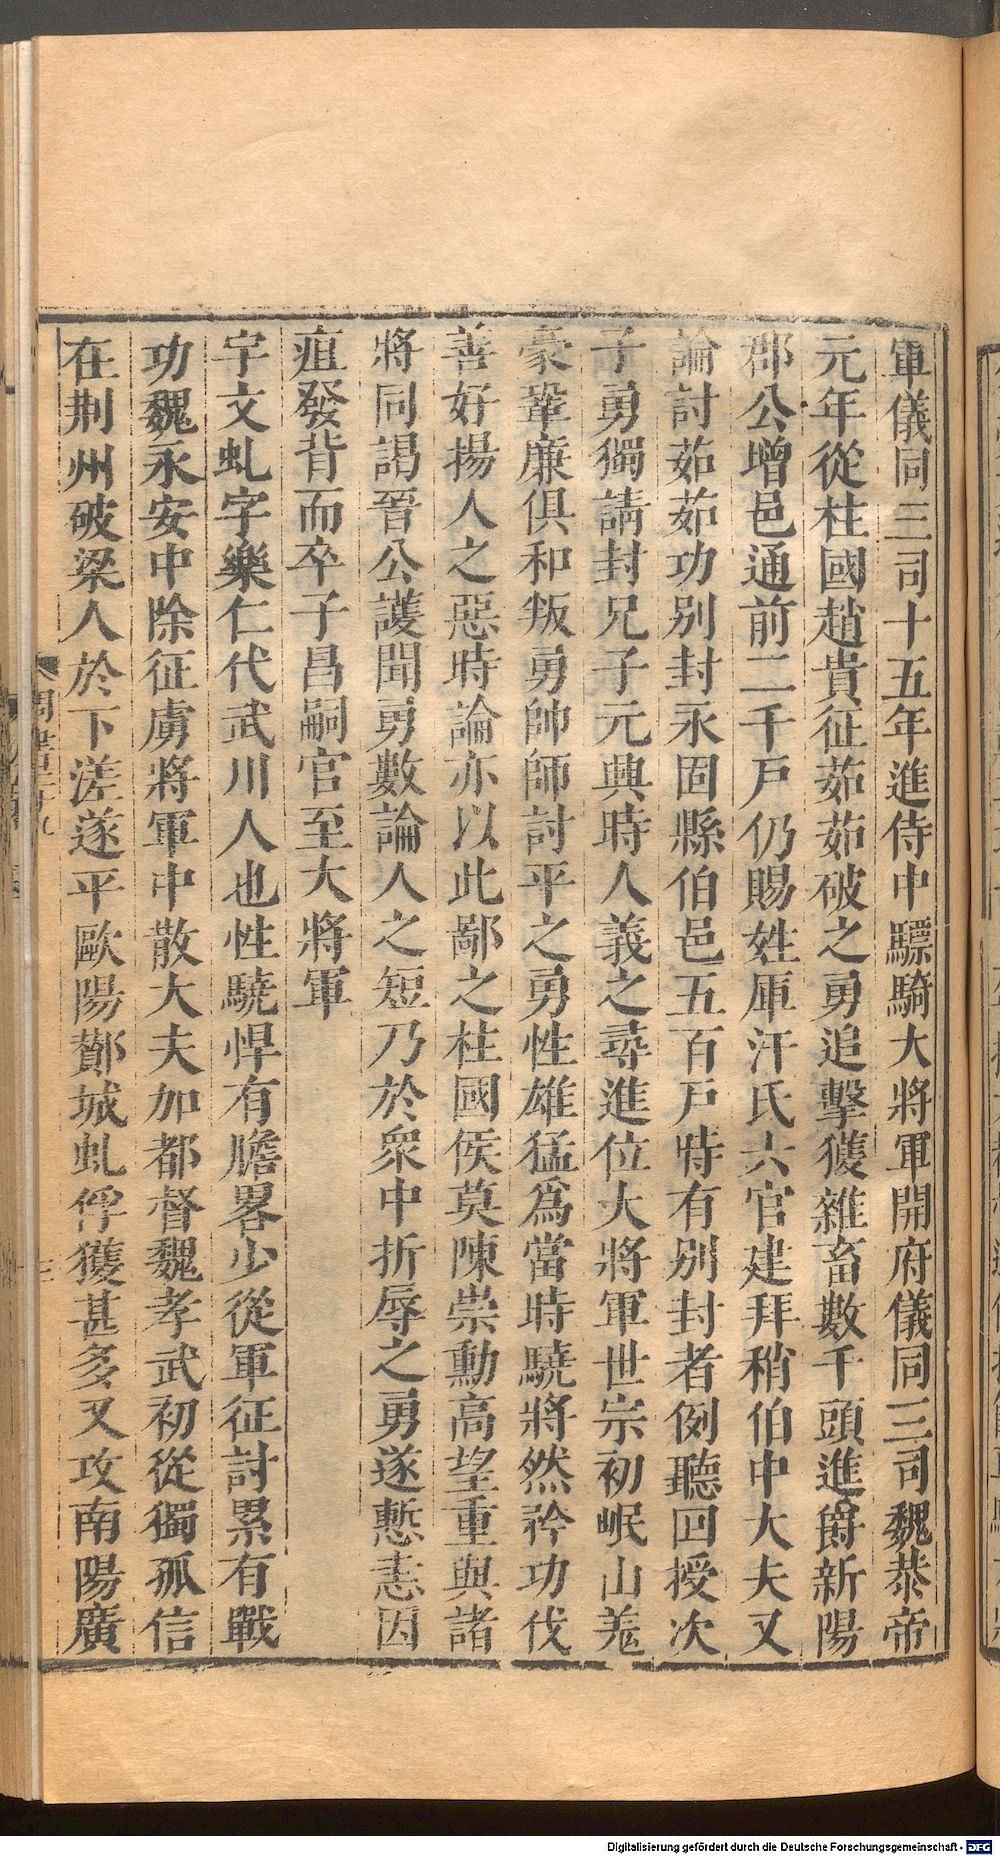 軍儀同三司十五年進侍中驃騎大將軍開府儀同三司魏恭帝
元年從柱國趙貴征茹茹破之勇追擊獲雜畜數千頭進爵新陽
郡公增邑通前二千戸仍賜姓庫汗氏六官建拜稍伯中大夫又
論討茹茹功别封永固縣伯邑五百戸時有别封者例聽回授次
子勇獨請封兄子元興時人義之尋進位大將軍世宗初岷山羗
豪鞏廉俱和叛勇帥師討平之勇性雄猛爲當時驍將然矜功伐
善好揚人之惡時論亦以此鄙之柱國侯莫陳崇勳高望重與諸
將同謁晉公護聞勇數論人之短乃於衆中折辱之勇遂慙恚因
疽發背而卒子昌嗣官至大將軍
宇文虬字樂仁代武川人也性驍悍有膽畧少從軍征討累有戰
功魏永安中除征虜將軍中散大夫加都督魏孝武初從獨孤信
在荆州破梁人於下溠遂平歐陽酇城虬俘獲甚多又攻南陽廣
周書
Digitalisierung gefördert durch die Deutsche Forschungsgemeinschaft - DFG